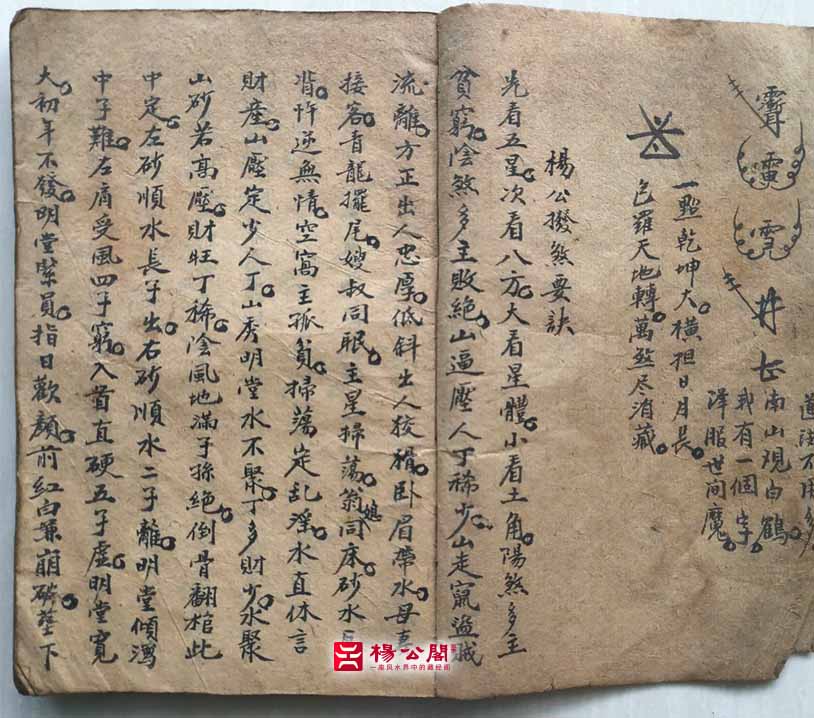 道法不用多
南山現白鶴
我有一個字
降服世間魔
一點乾坤大橫担日月長
包羅天地轉萬煞尽消藏
楊公撥煞要訣
先看五星次看八方大看星體小看土角陽煞多主
貧窮陰煞多主敗絶山逼壓人丁稀少山走竄盗賊
流離方正出人忠厚低斜出人狡猾卧眉帶水母
接客青龍擺尾嫂叔同眠主星掃蕩翁媳同床砂水
背忤逆無情空窩主孤貧掃蕩定乱淫水直休言
財產山壓定少人丁山秀明堂水不聚丁多財少水聚
山砂若高壓財旺丁稀陰風地滿子孫絕倒骨翻棺此
中定左砂順水長子出右砂順水二子離明堂傾瀉
中子難左肩受風四子窮入首直硬五子虛明堂寬
大初年不發明堂緊員指日歡顏前紅白兼崩破墓下
楊公閣
一座风水界中的藏经阁